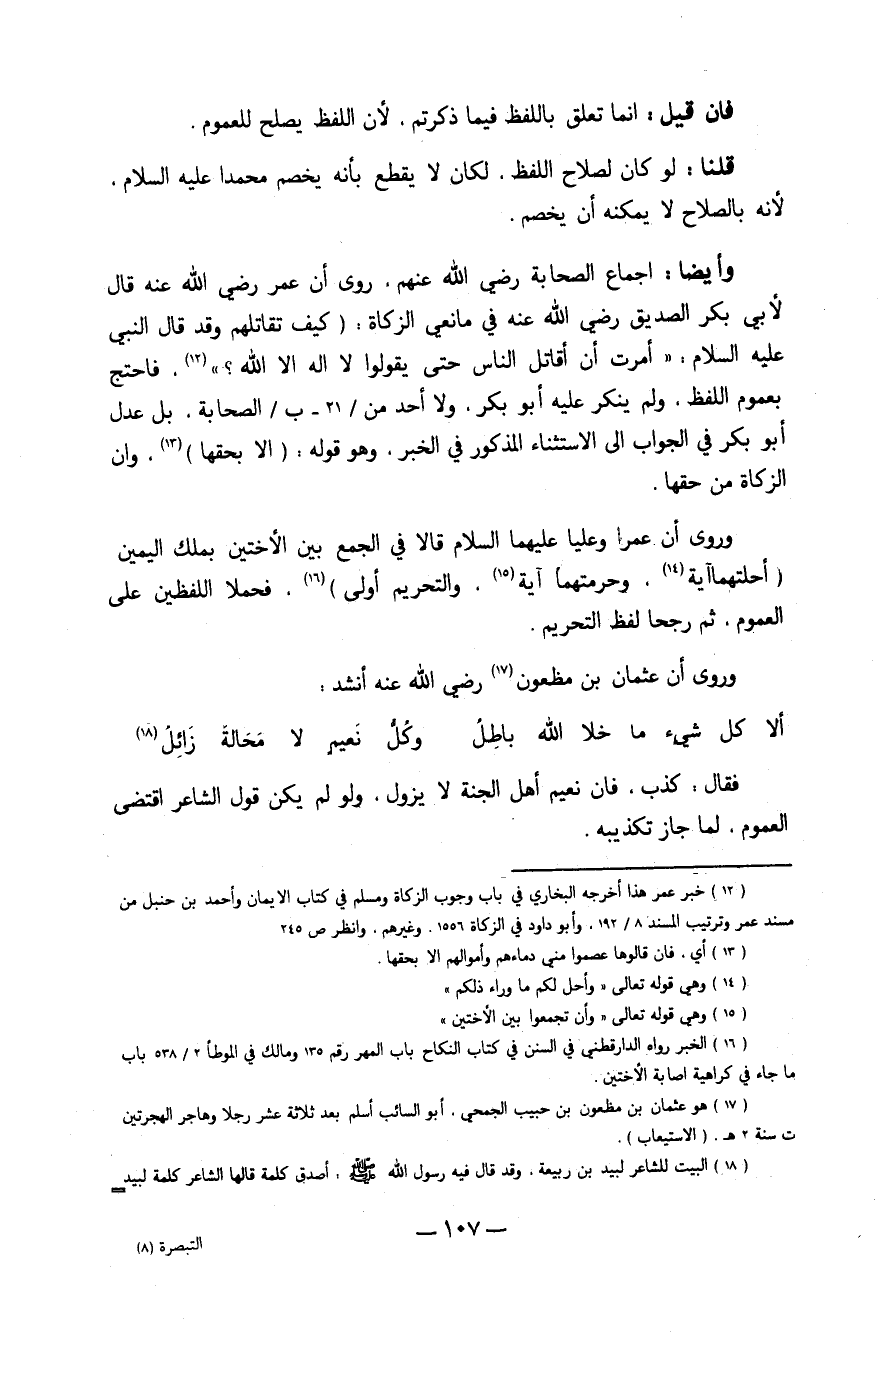 فان قيل : انما تعلق باللفظ فيما ذكرتم ، لأن اللفظ يصلح للعموم .
قلنا : لو كان لصلاح اللفظ ، لكان لا يقطع بأنه يخصم محمدا عليه السلام ،
لأنه بالصلاح لا يمكنه أن يخصم .
وأيضا : اجماع الصحابة رضي الله عنهم ، روى أن عمر رضي الله عنه قال
لأبي بكر الصديق رضي الله عنه في مانعي الزكاة : ( كيف تقاتلهم وقد قال النبي
عليه السلام : « أمرت أن أقاتل الناس حتى يقولوا لا اله الا الله ؟ »(١٢) ، فاحتج
بعموم اللفظ ، ولم ينكر عليه أبو بكر ، ولا أحد من / ٢١ ـ ب / الصحابة ، بل عدل
أبو بكر في الجواب الى الاستثناء المذكور في الخبر ، وهو قوله : ( الا بحقها )(١٣) ، وان
الزكاة من حقها .
وروى أن عمرا وعليا عليهما السلام قالا في الجمع بين الأختين بملك اليمين
( أحلتهماآية(١٤) ، وحرمتهمأ آية(١٥) ، والتحريم أولى )(١٦) ، فحملا اللفظين على
العموم ، ثم رجحا لفظ التحريم .
وروى أن عثمان بن مظعون(١٧) رضي الله عنه أنشد :
ألا كل شيء ما خلا الله باطِلُ وكُلُّ نَعيم لا مَحَالةَ زَائِلُ(١٨)
فقال : كذب ، فان نعيم أهل الجنة لا يزول ، ولو لم يكن قول الشاعر اقتضى
العموم ، لما جاز تكذيبه .
( ١٢ ) خبر عمر هذا أخرجه البخاري في باب وجوب الزكاة ومسلم في كتاب الايمان وأحمد بن حنبل من
مسند عمر وترتيب المسند ٨ / ١٩٢ ، وأبو داود في الزكاة ١٥٥٦ ، وغيرهم ، وانظر ص ٢٤٥
( ١٣ ) أي ، فان قالوها عصموا مني دماءهم وأموالهم الا بحقها .
( ١٤ ) وهي قوله تعالى « وأحل لكم ما وراء ذلكم »
( ١٥ ) وهي قوله تعالى « وأن تجمعوا بين الأختين »
( ١٦ ) الخبر رواه الدارقطني في السنن في كتاب النكاح باب المهر رقم ١٣٥ ومالك في الموطأ ٢ / ٥٣٨ باب
ما جاء في كراهية اصابة الأختين .
( ١٧ ) هو عثمان بن مظعون بن حبيب الجمحي ، أبو السائب أسلم بعد ثلاثة عشر رجلا وهاجر الهجرتين
ت سنة ٢ هـ . ( الاستيعاب ) .
( ١٨ ) البيت للشاعر لبيد بن ربيعة ، وقد قال فيه رسول الله ﷺ : أصدق كلمة قالها الشاعر كلمة لبيد
— ١٠٧ —
التبصرة (٨)